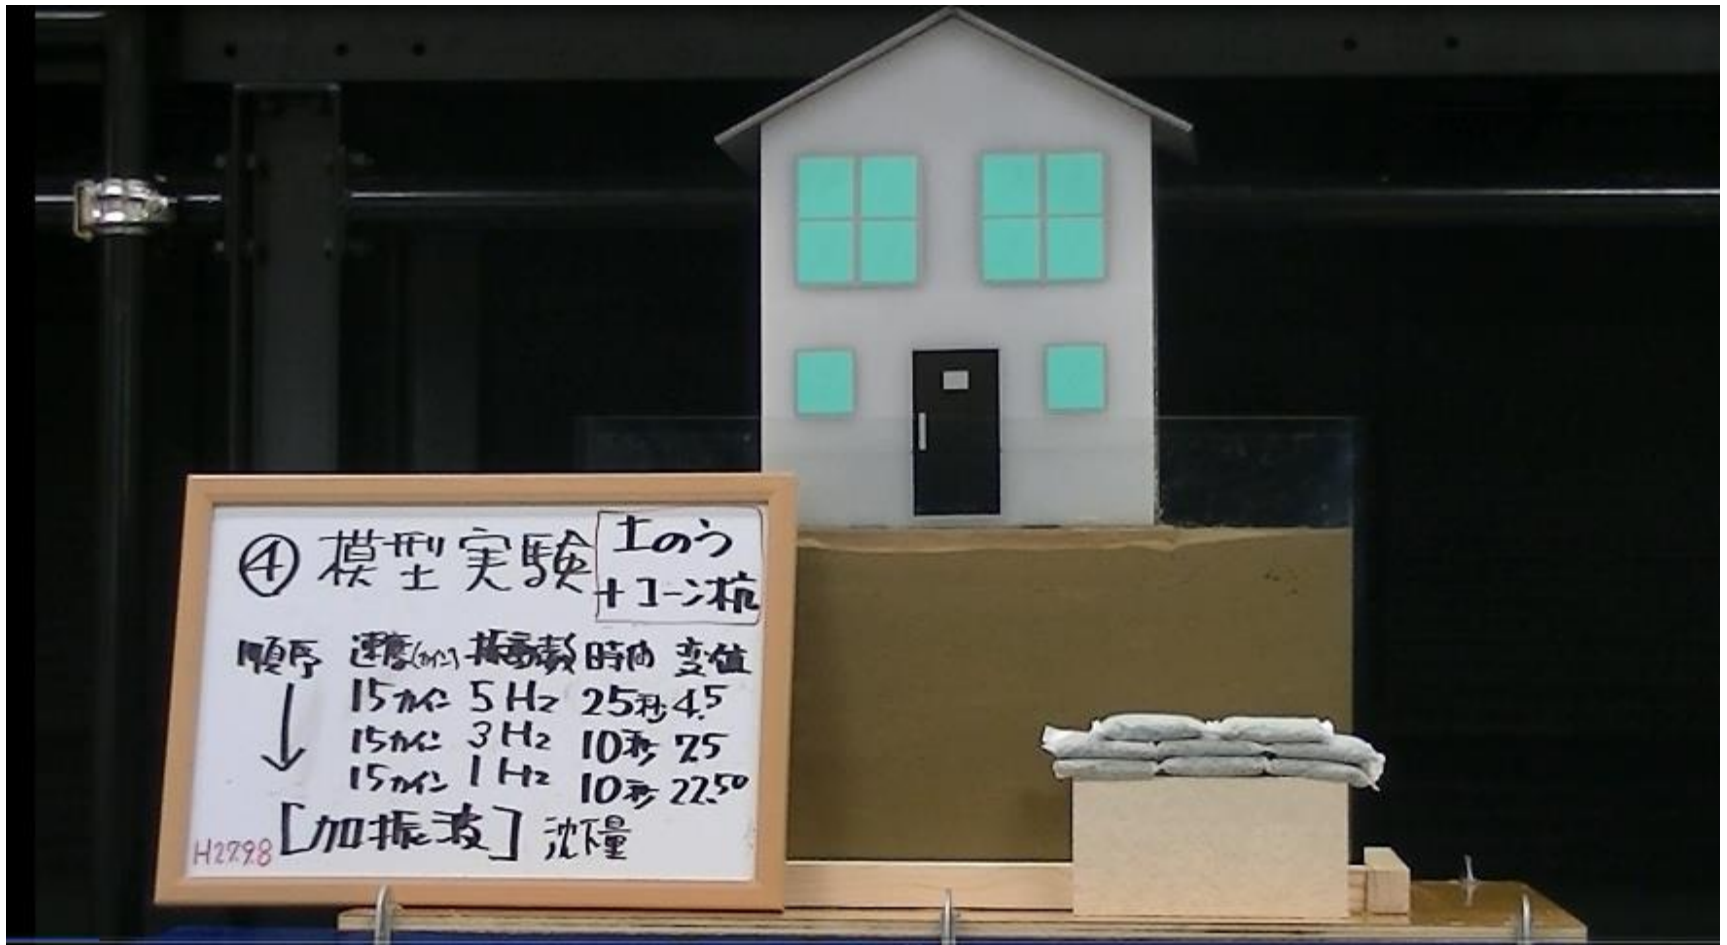 ④ 模型実験
土のう
+コーン杭
順序 速度(カイン) 振動数 時間 変位
15カイン 5Hz 25秒 4.5
15カイン 3Hz 10秒 7.5
15カイン 1Hz 10秒 22.50
[加振波] 沈下量
H27.9.8